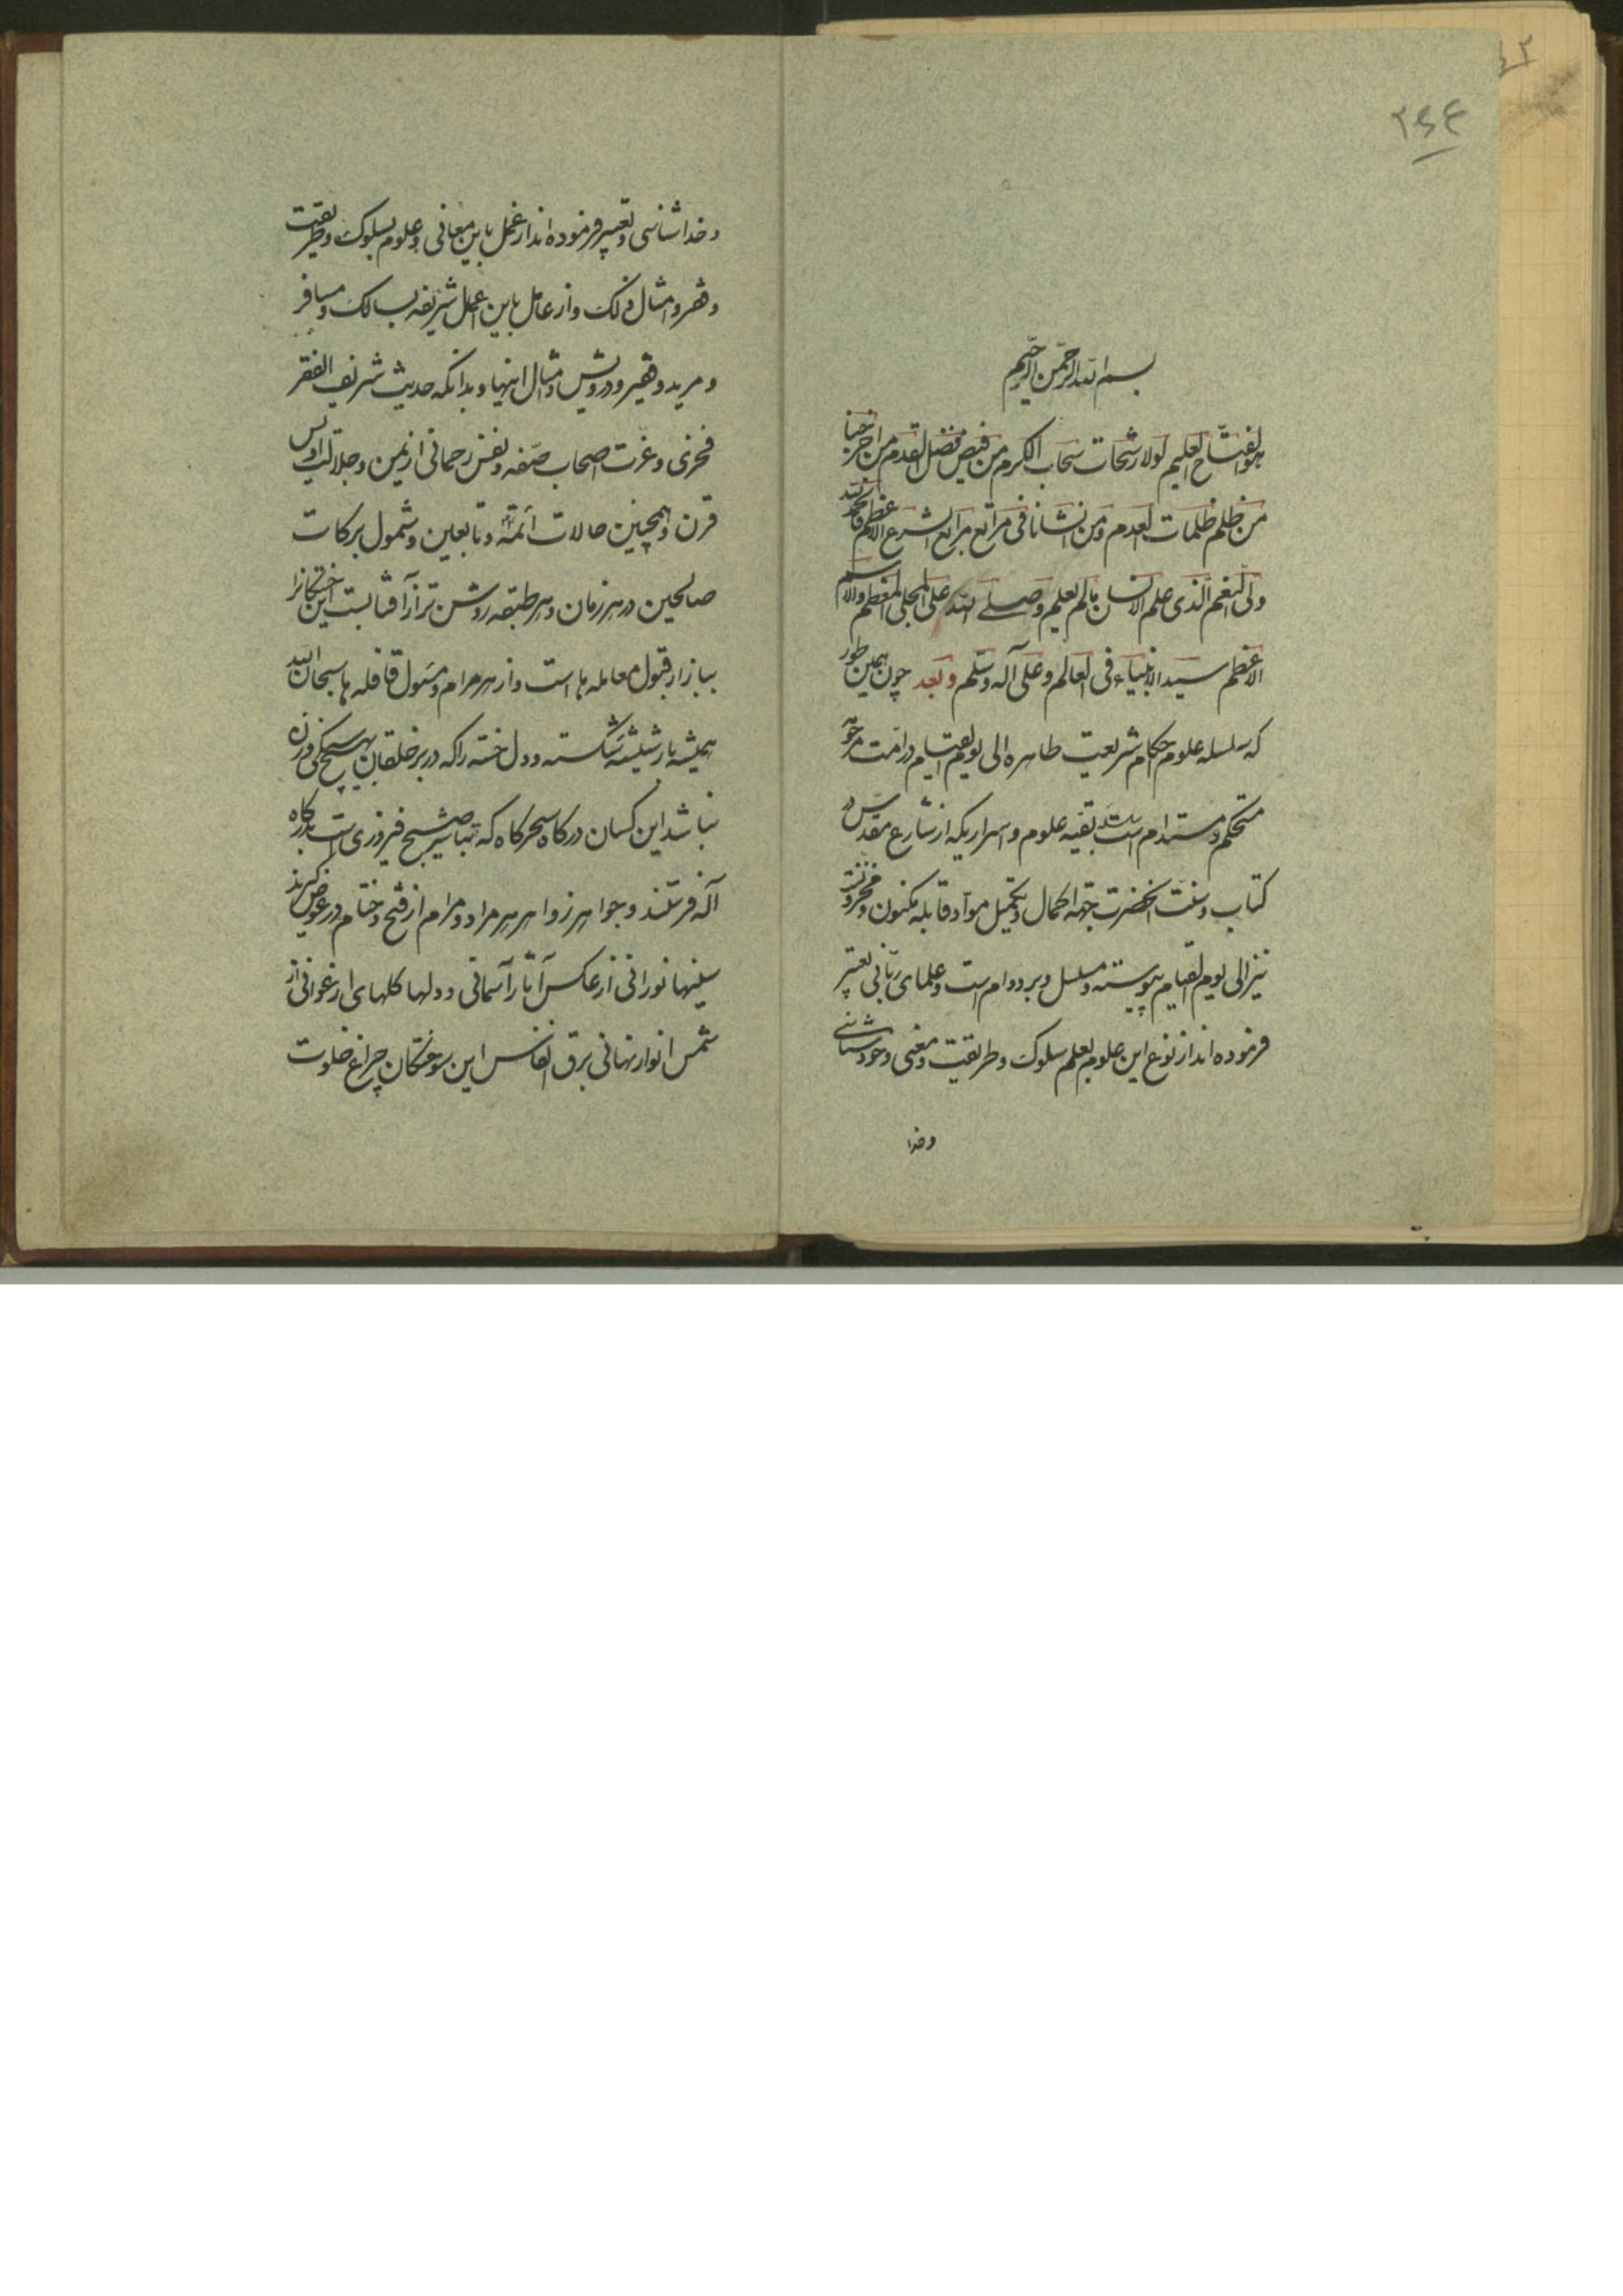 ۲۶۴
بسم الله الرحمن الرحیم
هو الفتاح العلیم لولا رشحات سحاب الکرم من فیض فضل القدم من اخرجنا
من ظلم ظلمات العدم ومن انشانا فی مراتع مرابع الشرع الاعظم فالحمد لله
ولی النعم الذی علم الانسان مالم یعلم وصلی الله علی المجلی المعظم والاسم
الاعظم سید الانبیاء فی العالم وعلی آله وسلم وبعد چون همین طور
که سلسله علوم احکام شریعت طاهره الی یوم القیام در امت مرحومه
مستحکم ومستدام است بقیه علوم واسراریکه از شارع مقدس در
کتاب وسنت آنحضرت بجهة اکمال وتکمیل مواد قابله مکنون ومخزونست
نیز الی یوم القیام پیوسته ومسلسل وبر دوام است وعلمای ربانی تعبیر
فرموده اند از نوع این علوم بعلم سلوک وطریقت ومعنی وخودشناسی
وخدا
وخداشناسی وتعبیر فرموده اند از عمل باین معانی وعلوم بسلوک وطریقت
وفقر وامثال ذلک واز عامل باین عمل شریفه بسالک ومسافر
ومرید وفقیر ودرویش وامثال اینها وبدانکه حدیث شریف الفقر
فخری وعزت اصحاب صفه ونفس رحمانی از یمن وجلالت اویس
قرن وهمچنین حالات ائمه وتابعین وشمول برکات
صالحین در هر زمان وهر طبقه روشن تر از آفتابست این
ببازار قبول معامله ها است واز هر مرام ومسئول قافله ها سبحان الله
همیشه بار شیشه شکسته ودل خسته را که در بر خلقان بهیچ
نباشد این کسان در کاه سحرکاه که تباشیر صبح فیروزی است بدرکاه
آله فرستند وجواهر زواهر هر مراد ومرام از فتح وختام در عوض کیرند
سینها نورانی از عکس آثار آسمانی ودلها کلهای ارغوانی از
شمس انوار نهانی برق انفاس این سوختکان چراغ خلوت